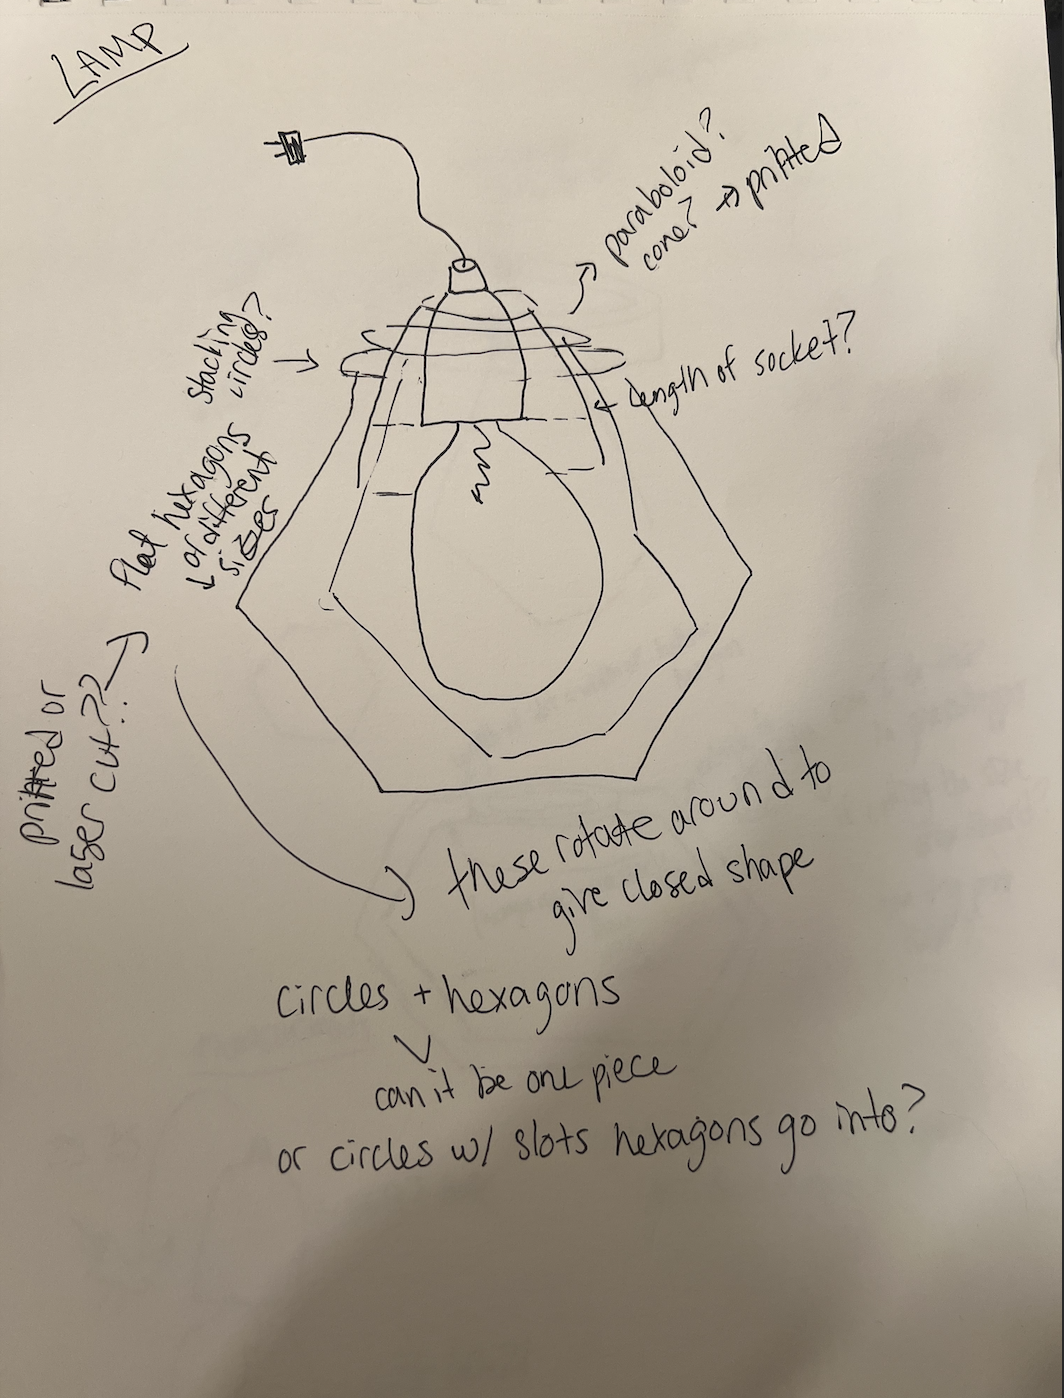 LAMP
paraboloid?
cone? → printed
Stacking
circles?
← Length of socket?
flat hexagons
of different
sizes
printed or
laser cut??
these rotate around to
give closed shape
circles + hexagons
can it be one piece
or circles w/ slots hexagons go into?